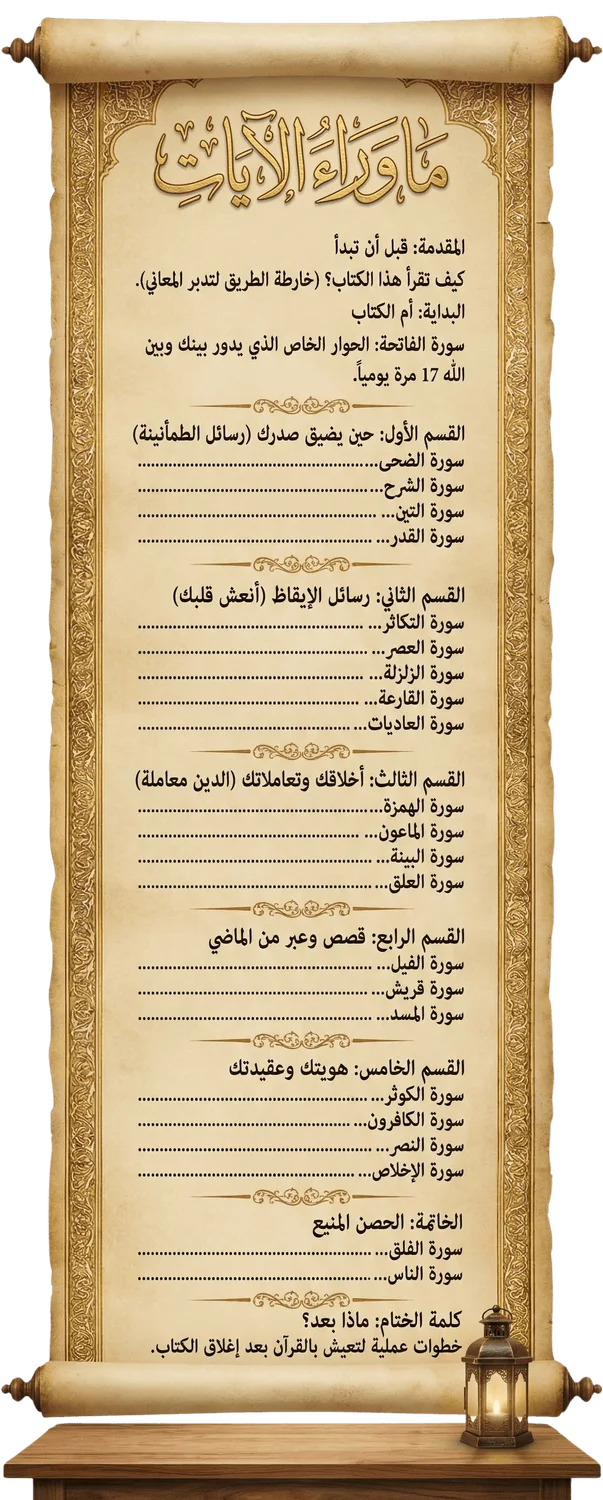 مَا وَرَاءَ الآيَاتِ
المقدمة: قبل أن تبدأ
كيف تقرأ هذا الكتاب؟ (خارطة الطريق لتدبر المعاني).
البداية: أم الكتاب
سورة الفاتحة: الحوار الخاص الذي يدور بينك وبين
الله 17 مرة يومياً.
القسم الأول: حين يضيق صدرك (رسائل الطمأنينة)
سورة الضحى...
سورة الشرح...
سورة التين...
سورة القدر...
القسم الثاني: رسائل الإيقاظ (أنعش قلبك)
سورة التكاثر...
سورة العصر...
سورة الزلزلة...
سورة القارعة...
سورة العاديات...
القسم الثالث: أخلاقك وتعاملاتك (الدين معاملة)
سورة الهمزة...
سورة الماعون...
سورة البينة...
سورة العلق...
القسم الرابع: قصص وعبر من الماضي
سورة الفيل...
سورة قريش...
سورة المسد...
القسم الخامس: هويتك وعقيدتك
سورة الكوثر...
سورة الكافرون...
سورة النصر...
سورة الإخلاص...
الخاتمة: الحصن المنيع
سورة الفلق...
سورة الناس...
كلمة الختام: ماذا بعد؟
خطوات عملية لتعيش بالقرآن بعد إغلاق الكتاب.